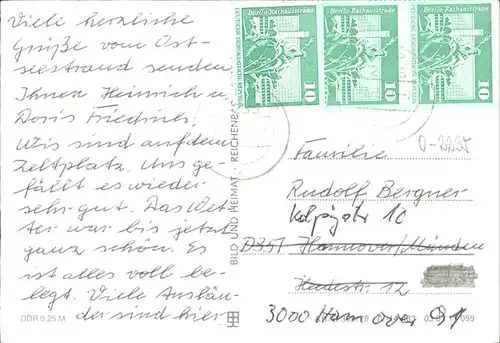 Viele herzliche
Grüße vom Ost-
seestrand senden
Ihnen Heinrich u.
Doris Friedrich.
Wir sind auf dem
Zeltplatz. Uns ge-
fällt es wieder
sehr gut. Das Wet-
ter war bis jetzt
ganz schön. Es
ist alles voll be-
legt. Viele Auslän-
der sind hier
DDR 0,25 M
BILD UND HEIMAT REICHENBACH
Berlin-Rathausstraße
DEUTSCHE DEMOKRATISCHE REPUBLIK
10
Berlin-Rathausstraße
10
Berlin-Rathausstraße
10
Familie
Rudolf Bergner
10
D351 Hannover/Münden
12
3000 Hannover 91